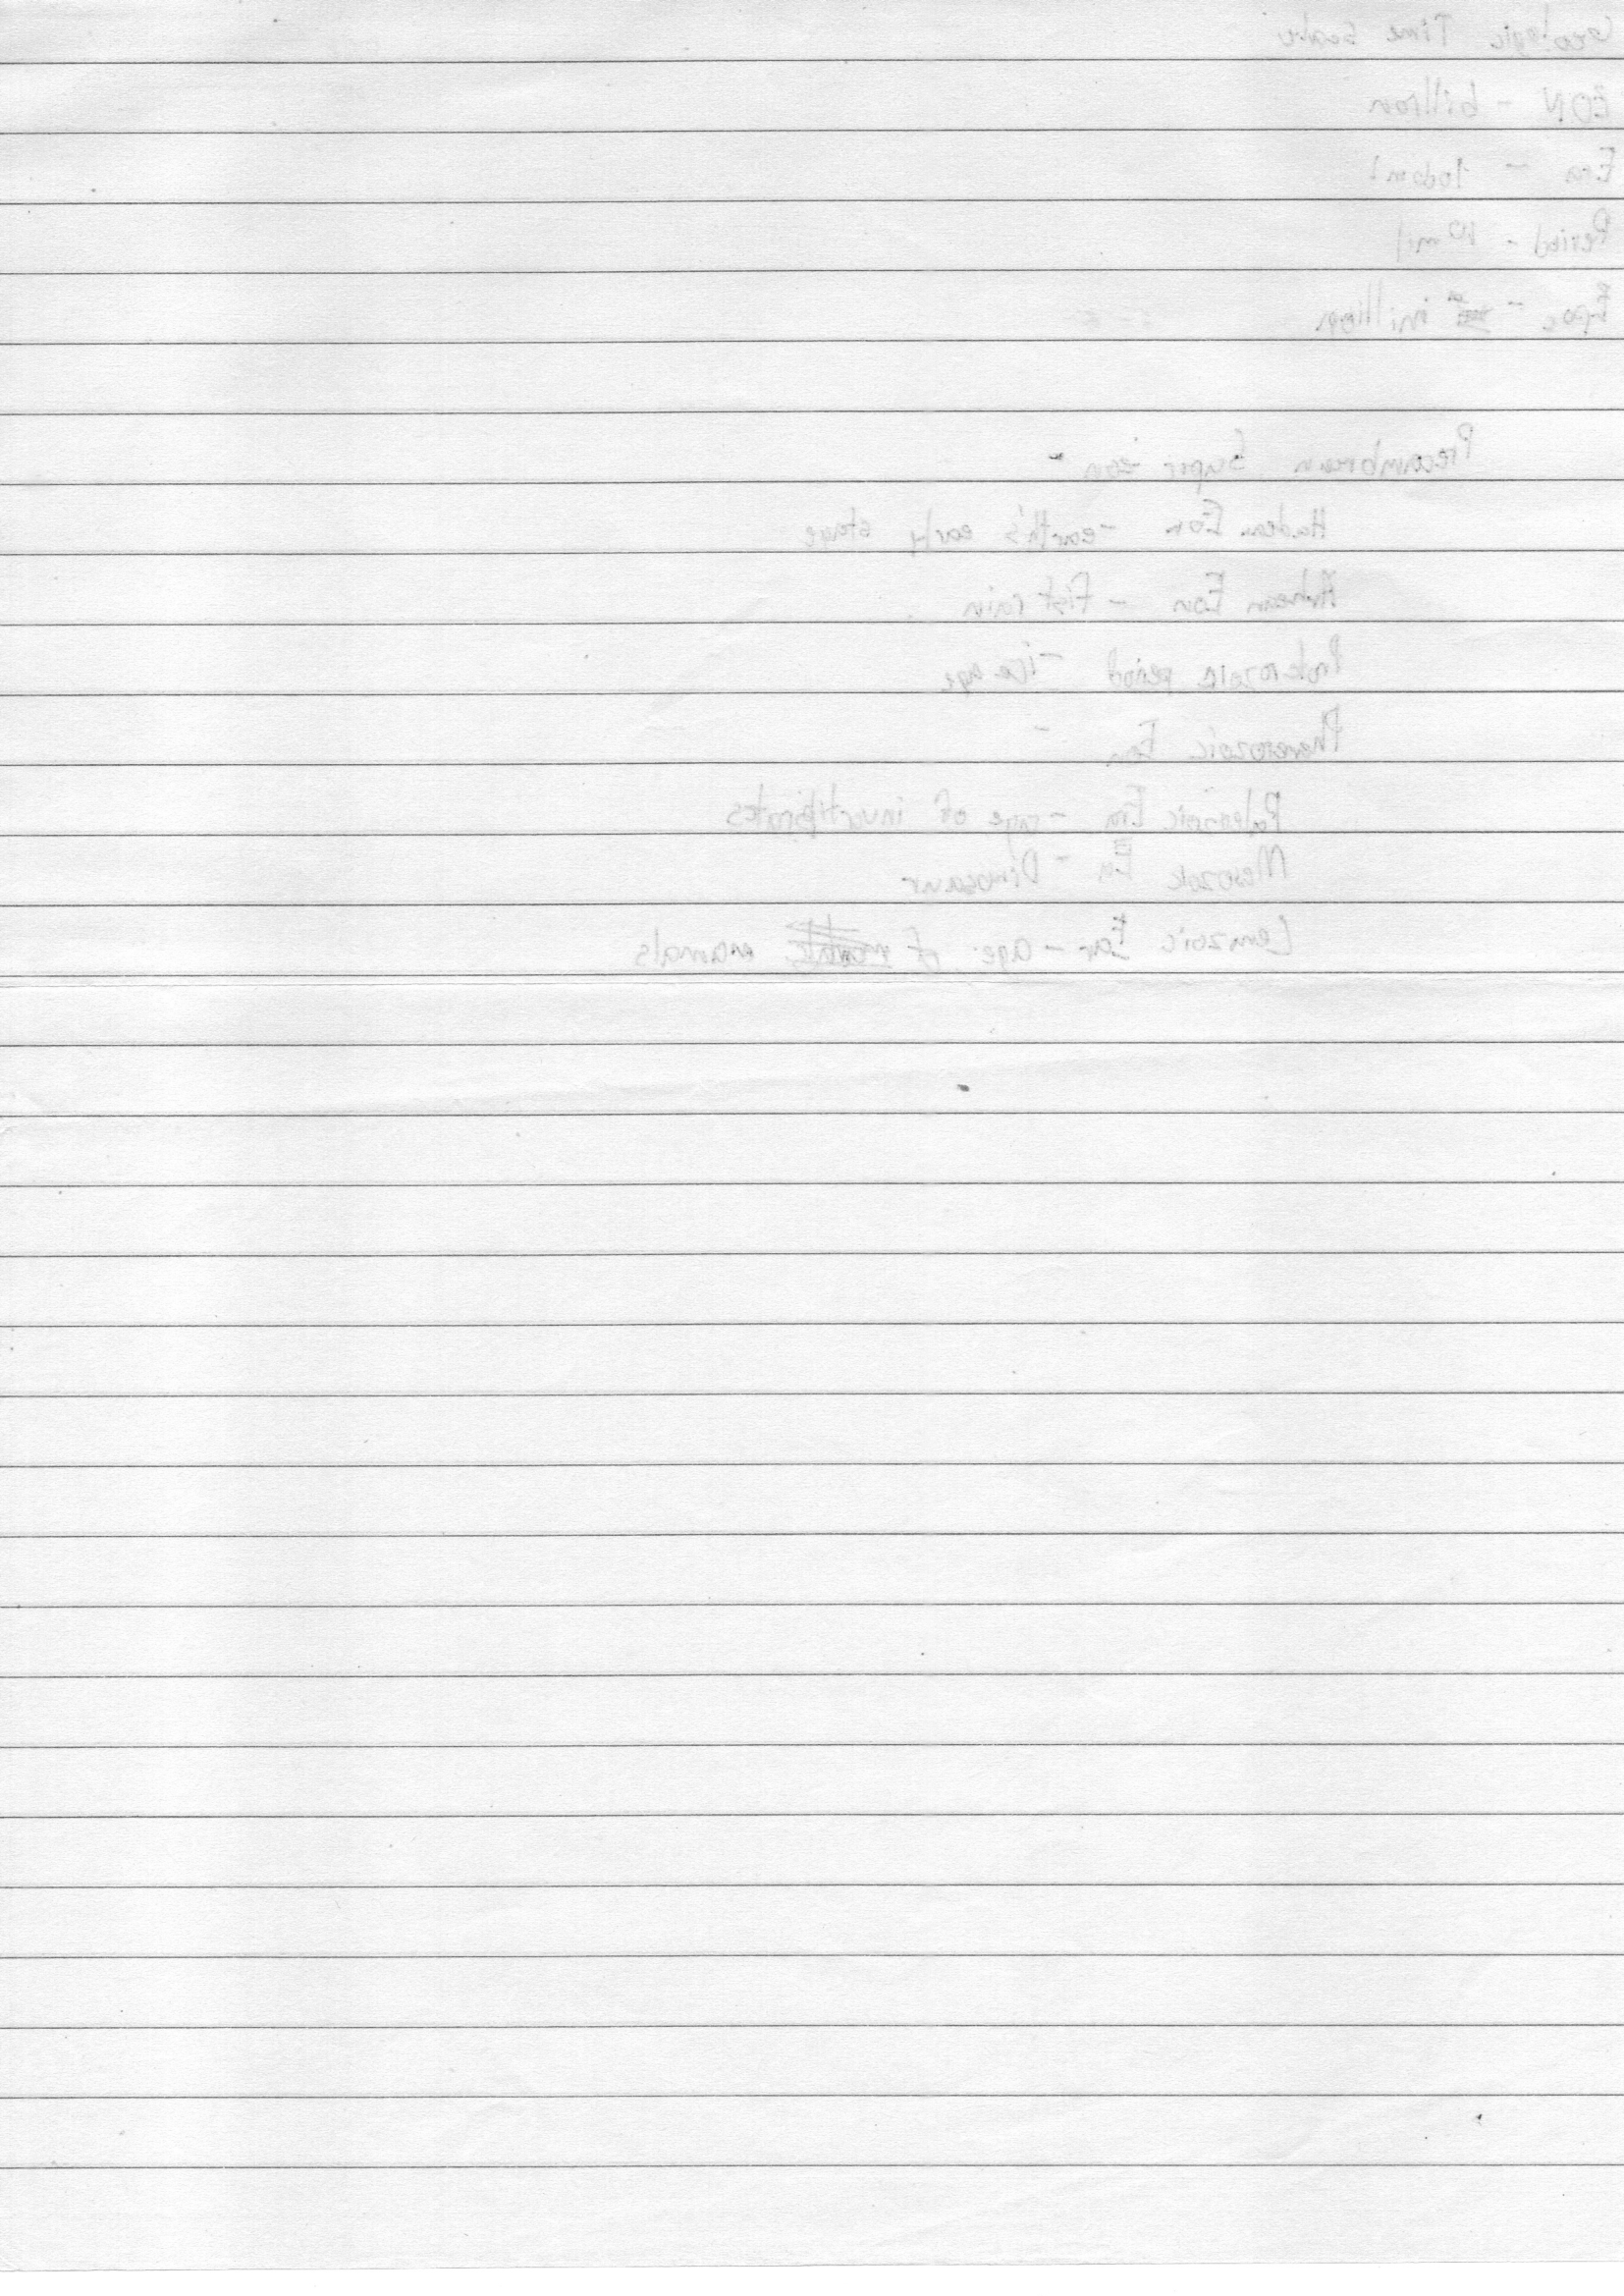 Geologic Time Scale
EON - billion
Era - 100 mil
Period - 10 mil
Epoc - million
Precambrean Super eon -
Hadean Eon - earth's early stage
Arhean Eon - First rain
Proterozoic period - ice age
Phanerozoic Eon -
Paleozoic Era - age of invertibrates
Mesozoic Era - Dinosaur
Cenozoic Ear - age of mamals